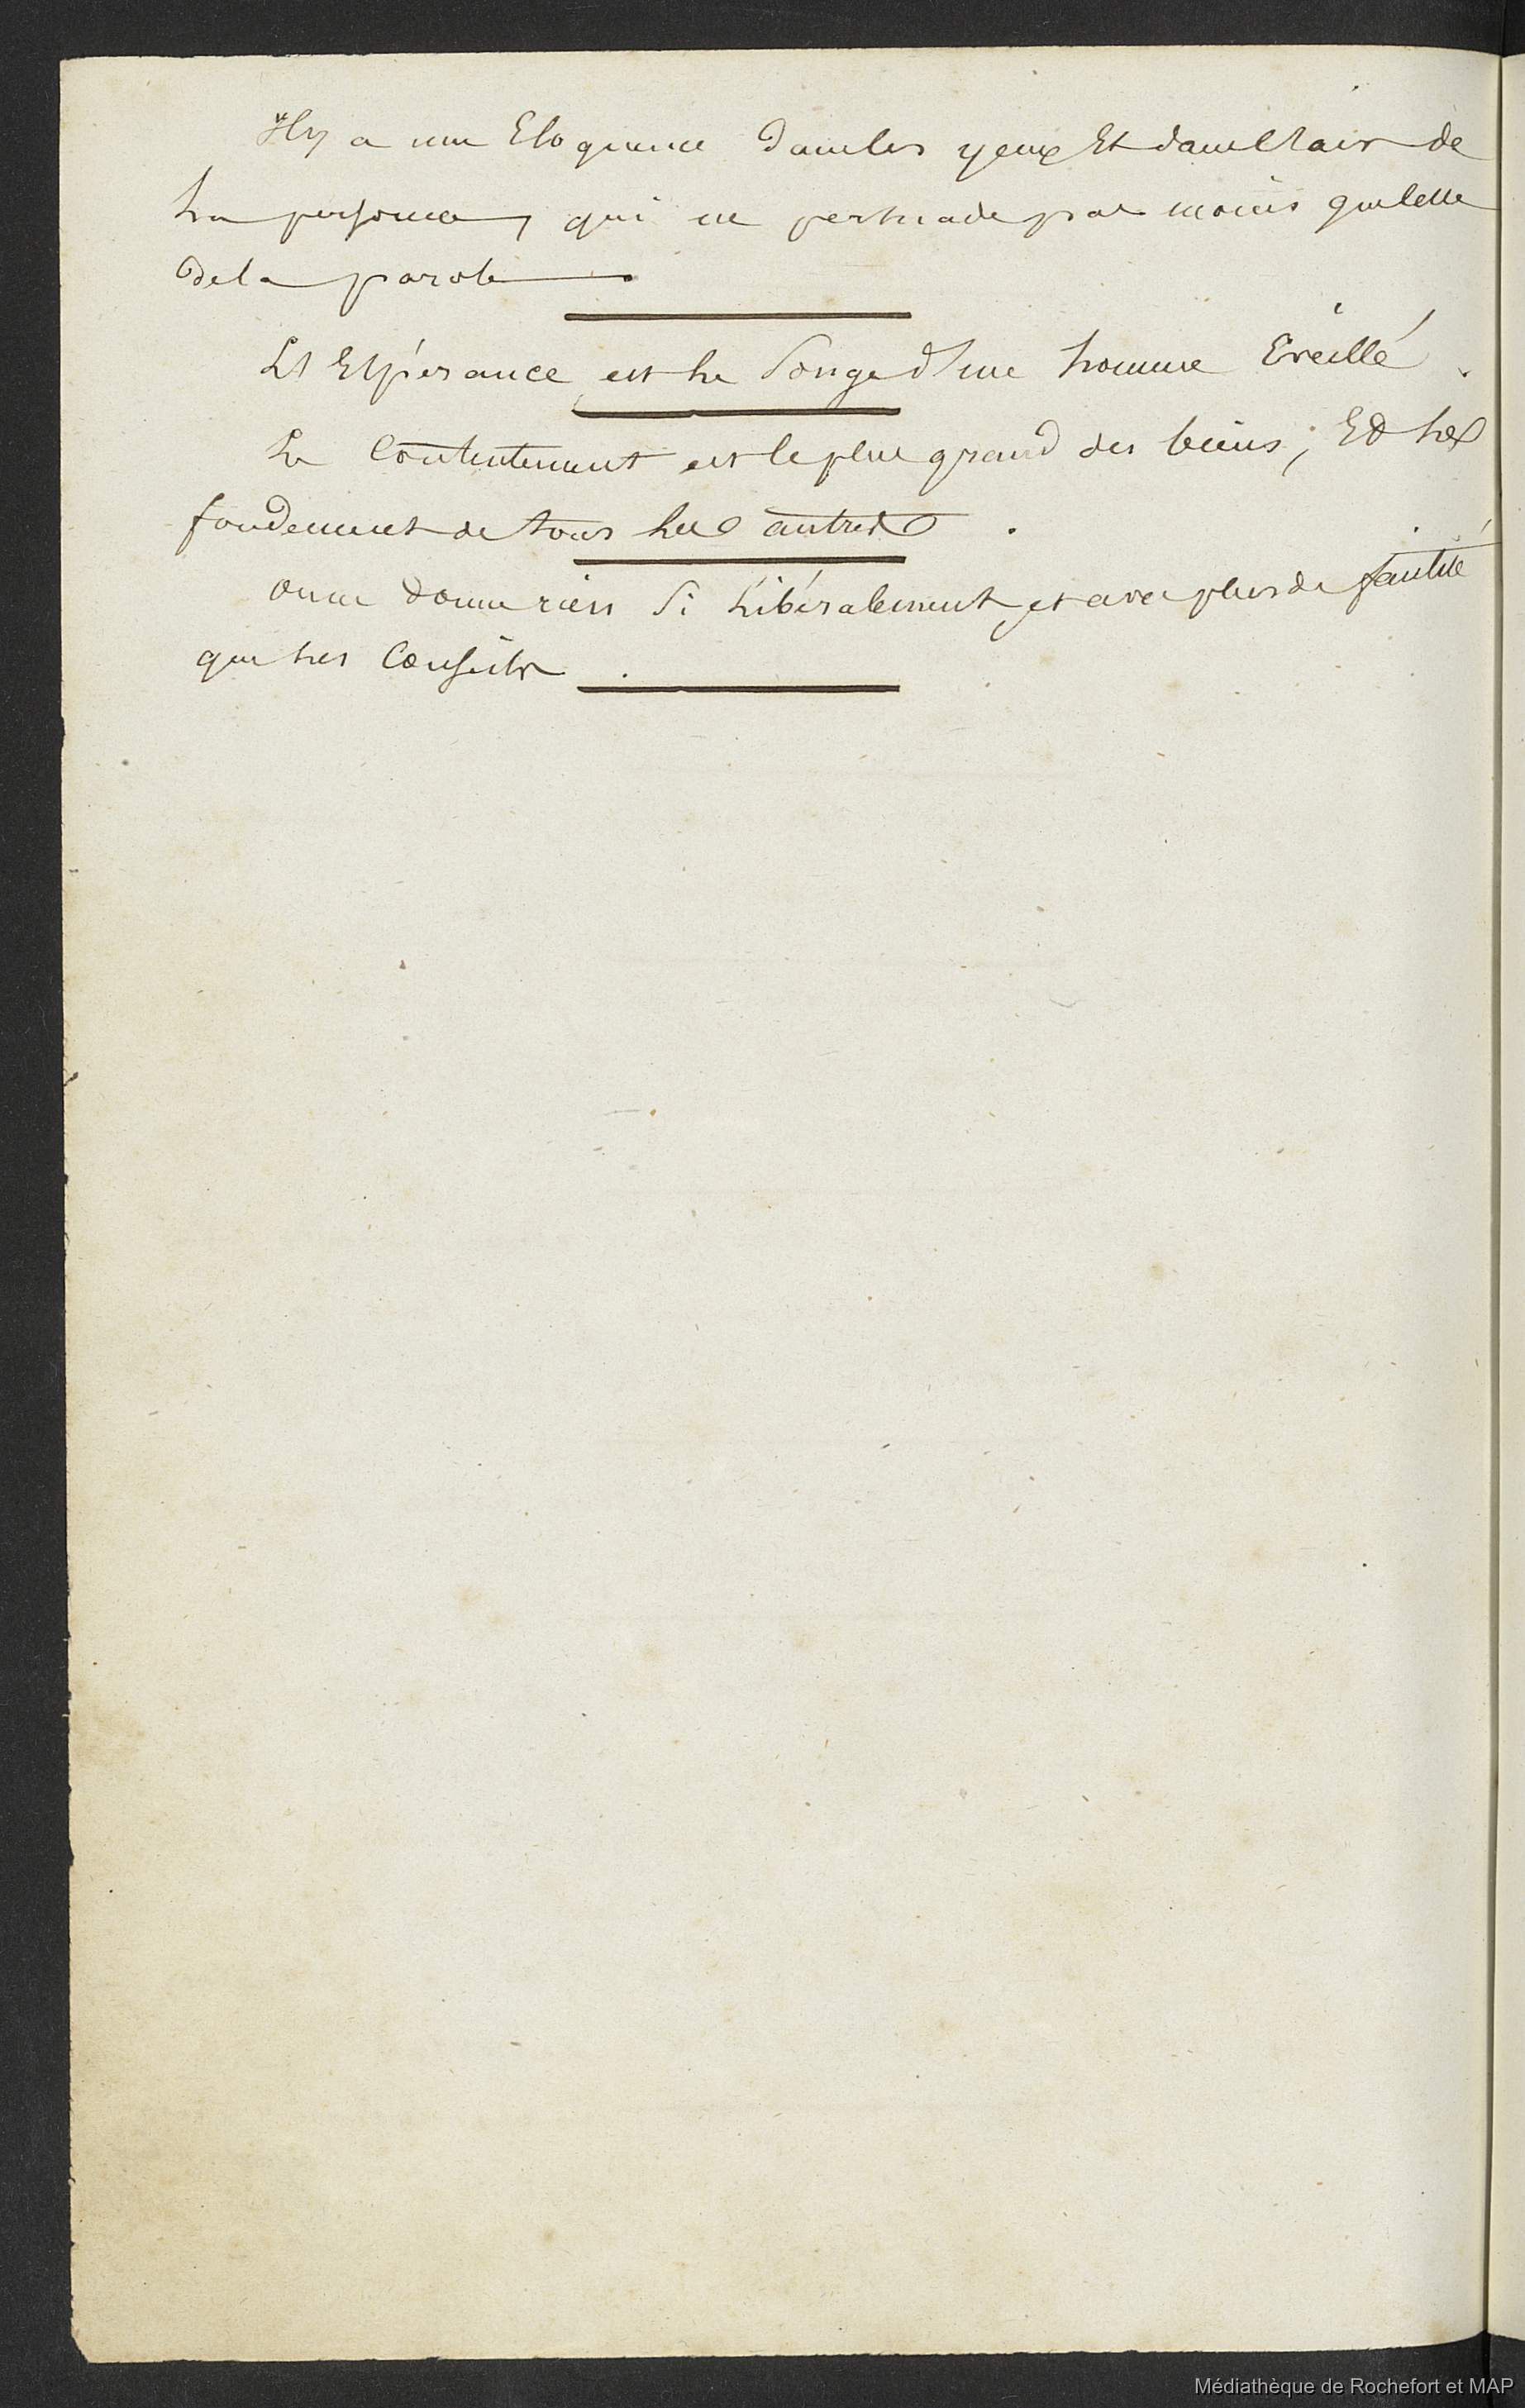 Il y a une Eloquence dans les yeux Et dans l'air de
la personne, qui ne persuade pas moins que celle
de la parole
L'Espérance est le Songe d'une homme Eveillé.
Le Contentement est le plus grand des biens; Et le
fondement de tous les autres.
On ne donne rien Si Libéralement, et avec plus de facilité
que les Conseils.
Médiathèque de Rochefort et MAP